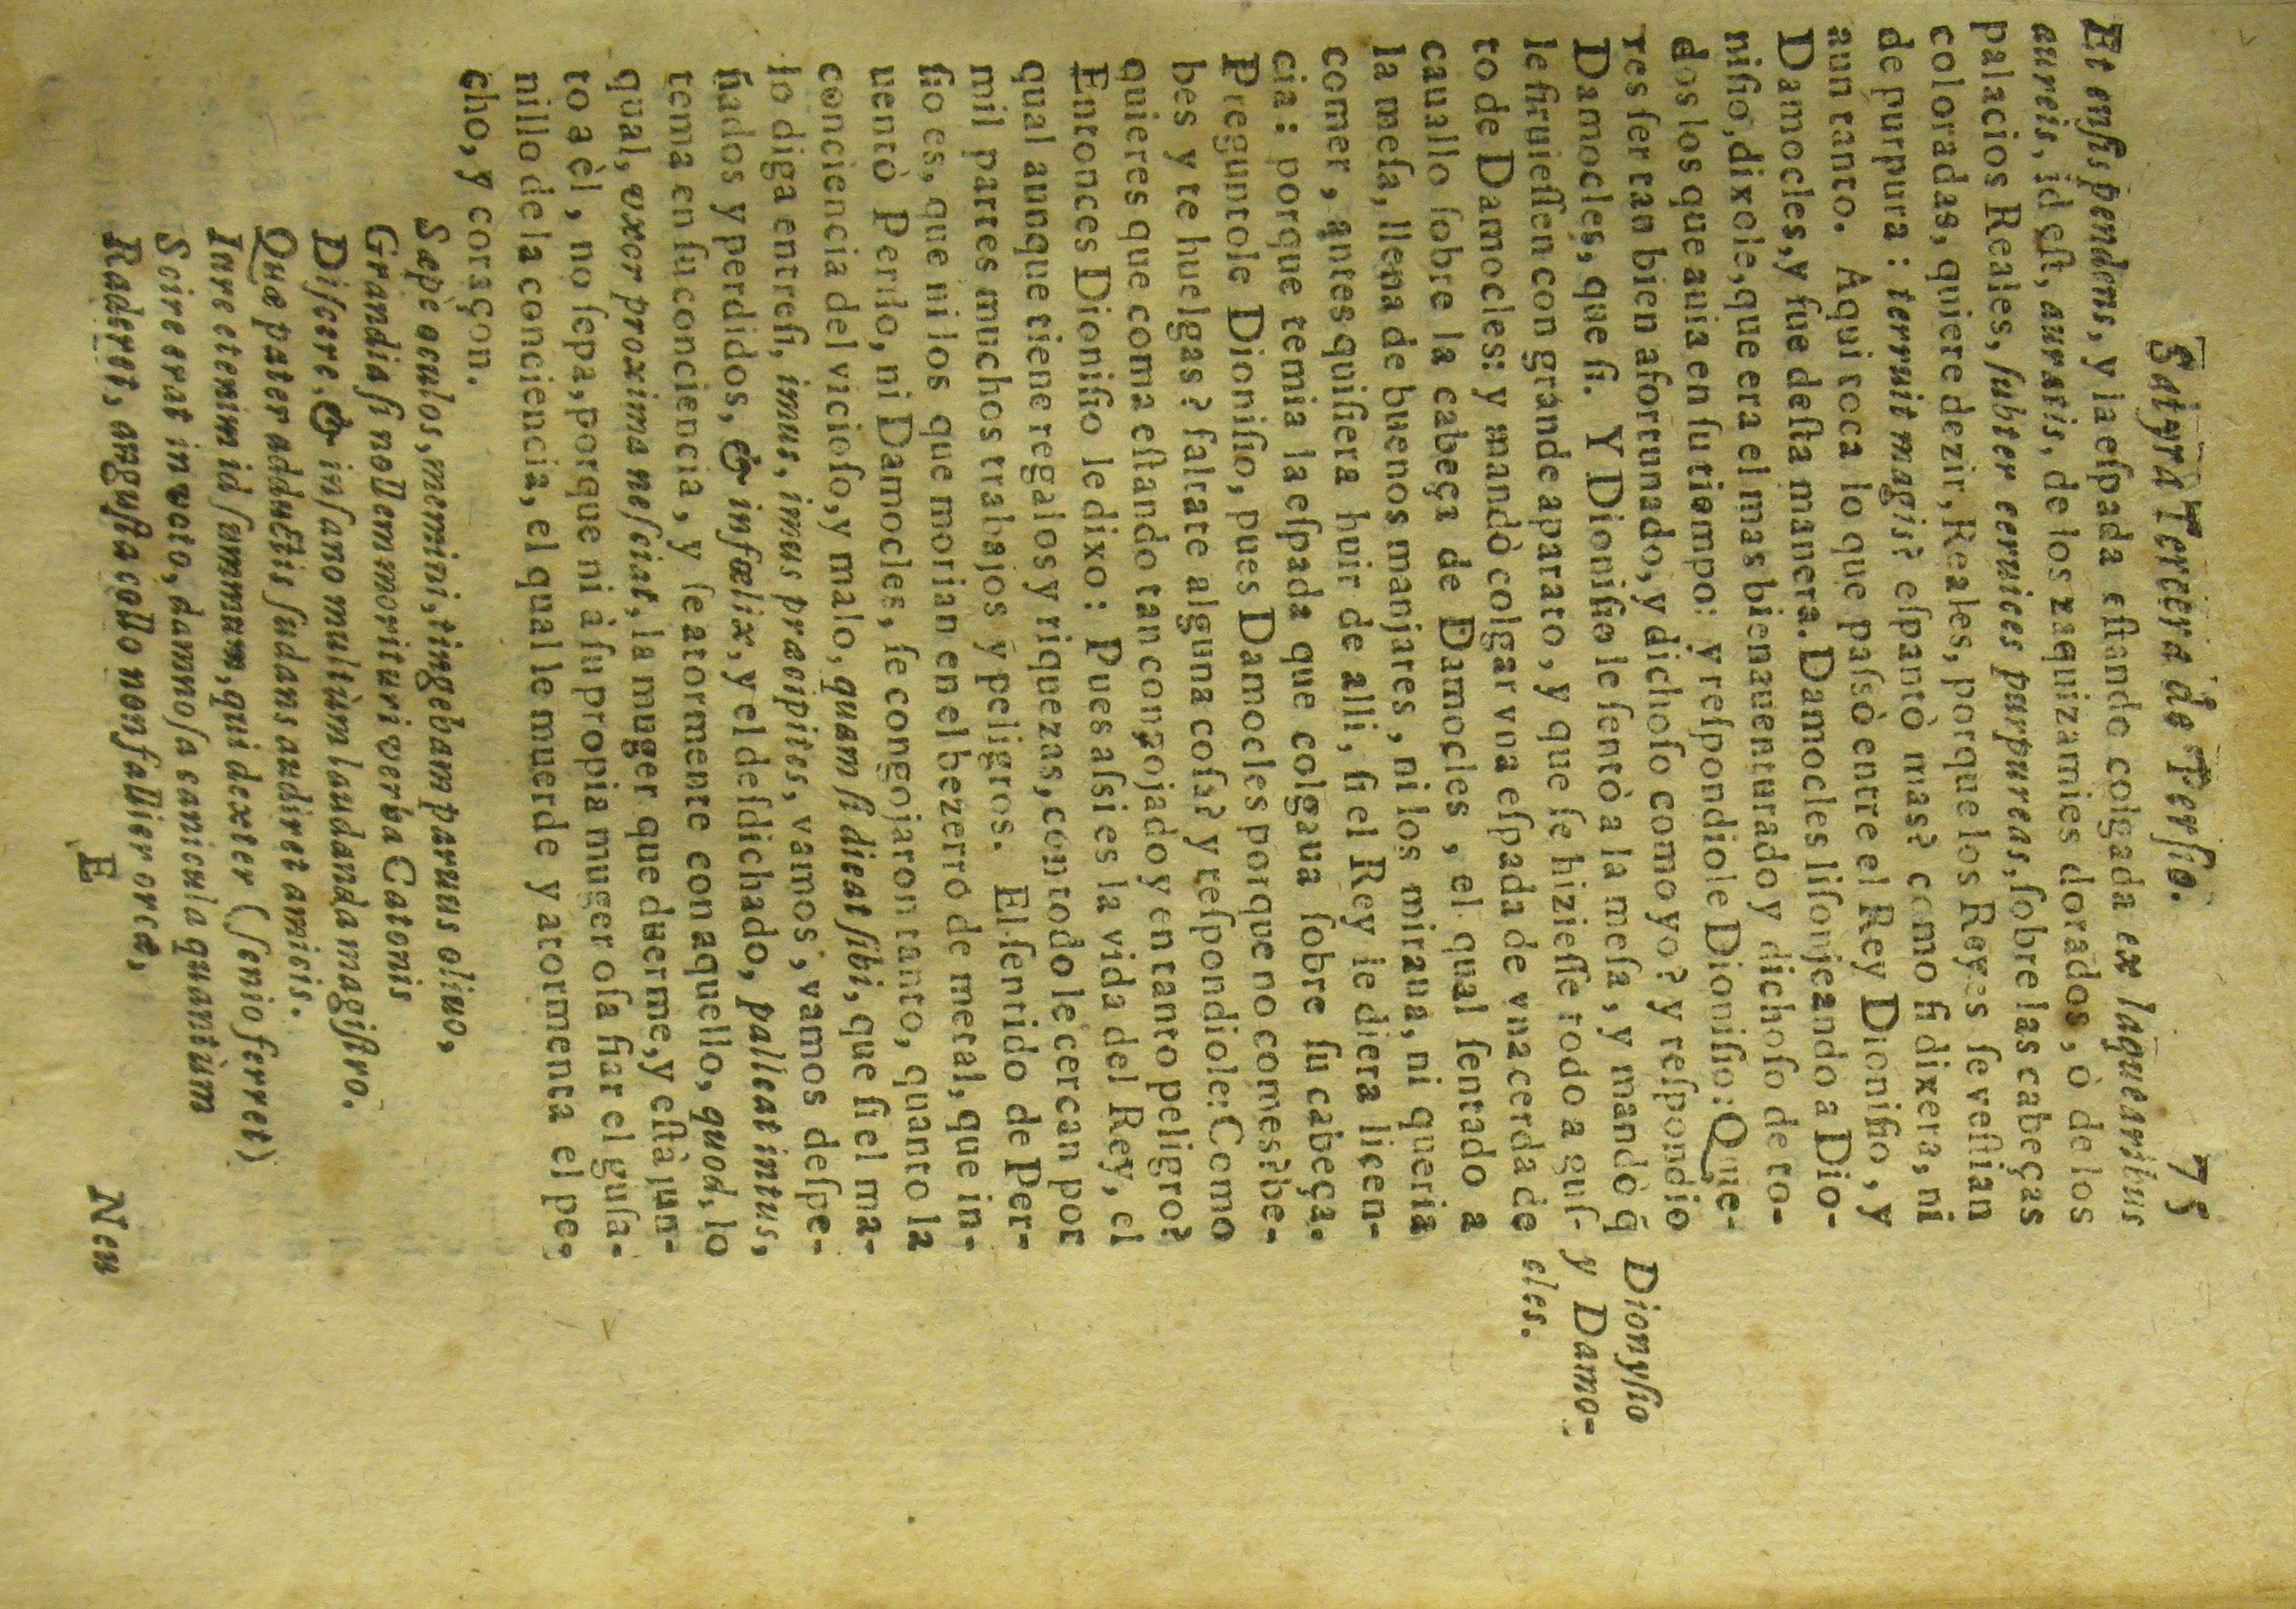 Satyra Tercera de Persio. 75
Et ensis pendens, y la espada estando colgada ex laquearibus
aureis, id est, auratis, de los zaquizamies dorados, ò de los
palacios Reales, subter ceruices purpureas, sobre las cabeças
coloradas, quiere dezir, Reales, porque los Reyes se vestian
de purpura: terruit magis? espantò mas? como si dixera, ni
aun tanto. Aqui toca lo que passò entre el Rey Dionisio, y
Damocles, y fue desta manera. Damocles lisonjeando a Dio-
nisio, dixole, que era el mas bienauenturado y dichoso de to-
dos los que auia en su tiempo: y respondiole Dionisio: Quie-
res ser tan bien afortunado, y dichoso como yo? y respondio
Damocles, que si. Y Dionisio le sentò a la mesa, y mandò q̃
le siruiessen con grande aparato, y que se hiziesse todo a gus-
to de Damocles: y mandò colgar vna espada de vna cerda de
cauallo sobre la cabeça de Damocles, el qual sentado a
la mesa, llena de buenos manjares, ni los miraua, ni queria
comer, antes quisiera huir de alli, si el Rey le diera licen-
cia: porque temia la espada que colgaua sobre su cabeça.
Preguntole Dionisio, pues Damocles porque no comes? be-
bes y te huelgas? faltate alguna cosa? y respondiole: Como
quieres que coma estando tan congojado y en tanto peligro?
Entonces Dionisio le dixo: Pues assi es la vida del Rey, el
qual aunque tiene regalos y riquezas, con todo le cercan por
mil partes muchos trabajos y peligros. El sentido de Per-
sio es, que ni los que morian en el bezerro de metal, que in-
uentò Perilo, ni Damocles, se congojaron tanto, quanto la
conciencia del vicioso, y malo, quam si dicat sibi, que si el ma-
lo diga entre si, imus, imus præcipites, vamos, vamos despe-
ñados y perdidos, & infælix, y el desdichado, palleat intus,
tema en su conciencia, y se atormente con aquello, quod, lo
qual, vxor proxima nesciat, la muger que duerme, y està jun-
to a èl, no sepa, porque ni à su propia muger osa fiar el gusa-
nillo de la conciencia, el qual le muerde y atormenta el pe-
cho, y coraçon.
Sæpè oculos, memini, tingebam paruus oliuo,
Grandia si nollem morituri verba Catonis
Discere, & insano multùm laudanda magistro.
Quæ pater adductis sudans audiret amicis.
Iure etenim id summum, qui dexter (senio ferret)
Scire erat in voto, damnosa canicula quantùm
Raderet, angusta collo non fallier orcæ,
E New
Dionysio
y Damo-
cles.